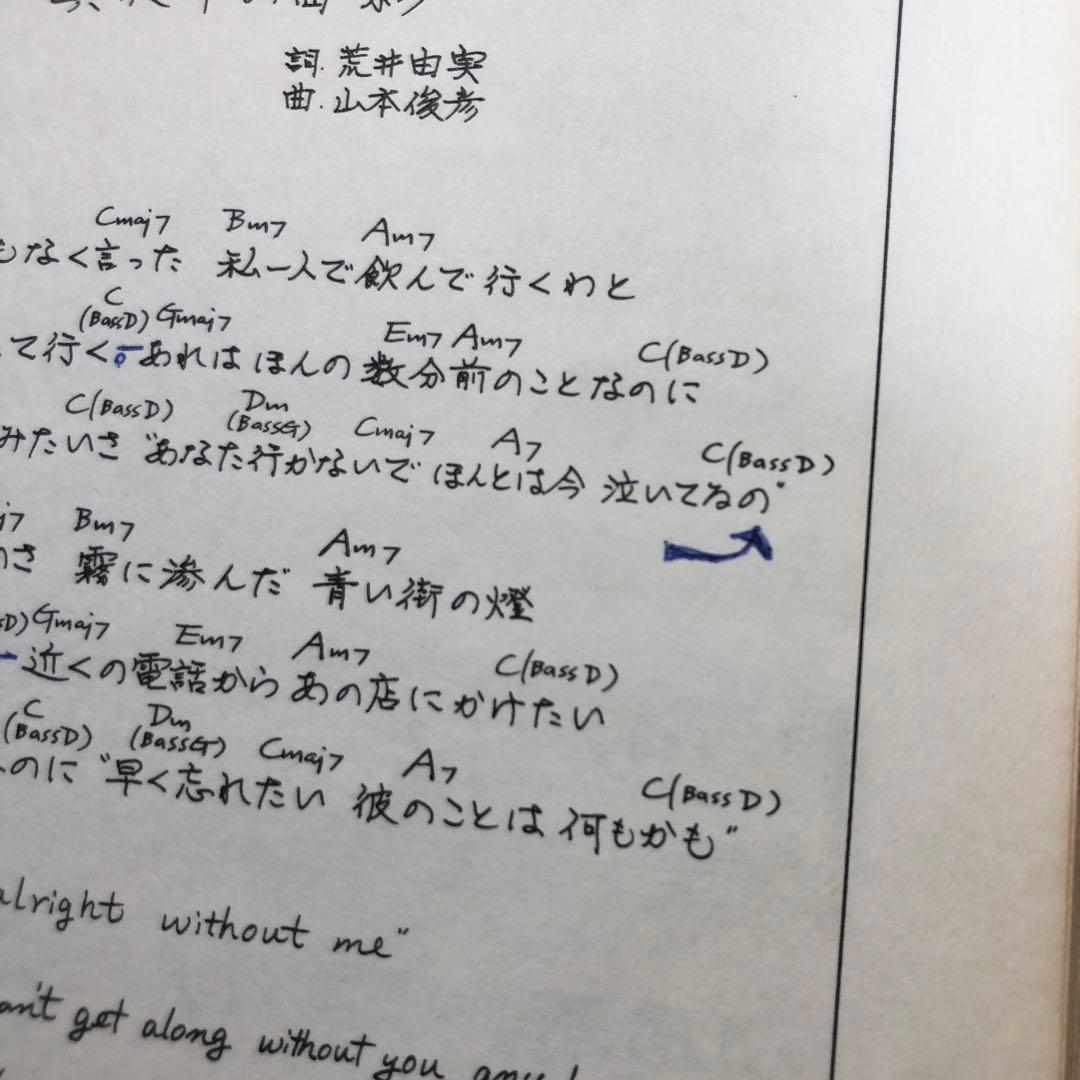 詞.荒井由実
曲.山本俊彦
Cmaj7 Bm7 Am7
もなく言った 私一人で飲んで行くわと
C
(BassD) Gmaj7 Em7 Am7 C(BassD)
て行く あれは ほんの 数分前のことなのに
C(BassD) Dm
(BassG) Cmaj7 A7 C(BassD)
みたいさ "あなた行かないで ほんとは今 泣いてるの"
j7 Bm7 Am7
のさ 霧に滲んだ 青い街の燈
sD) Gmaj7 Em7 Am7 C(BassD)
近くの電話から あの店にかけたい
C
(BassD) Dm
(BassG) Cmaj7 A7 C(BassD)
のに "早く忘れたい 彼のことは 何もかも"
alright without me"
an't get along without you